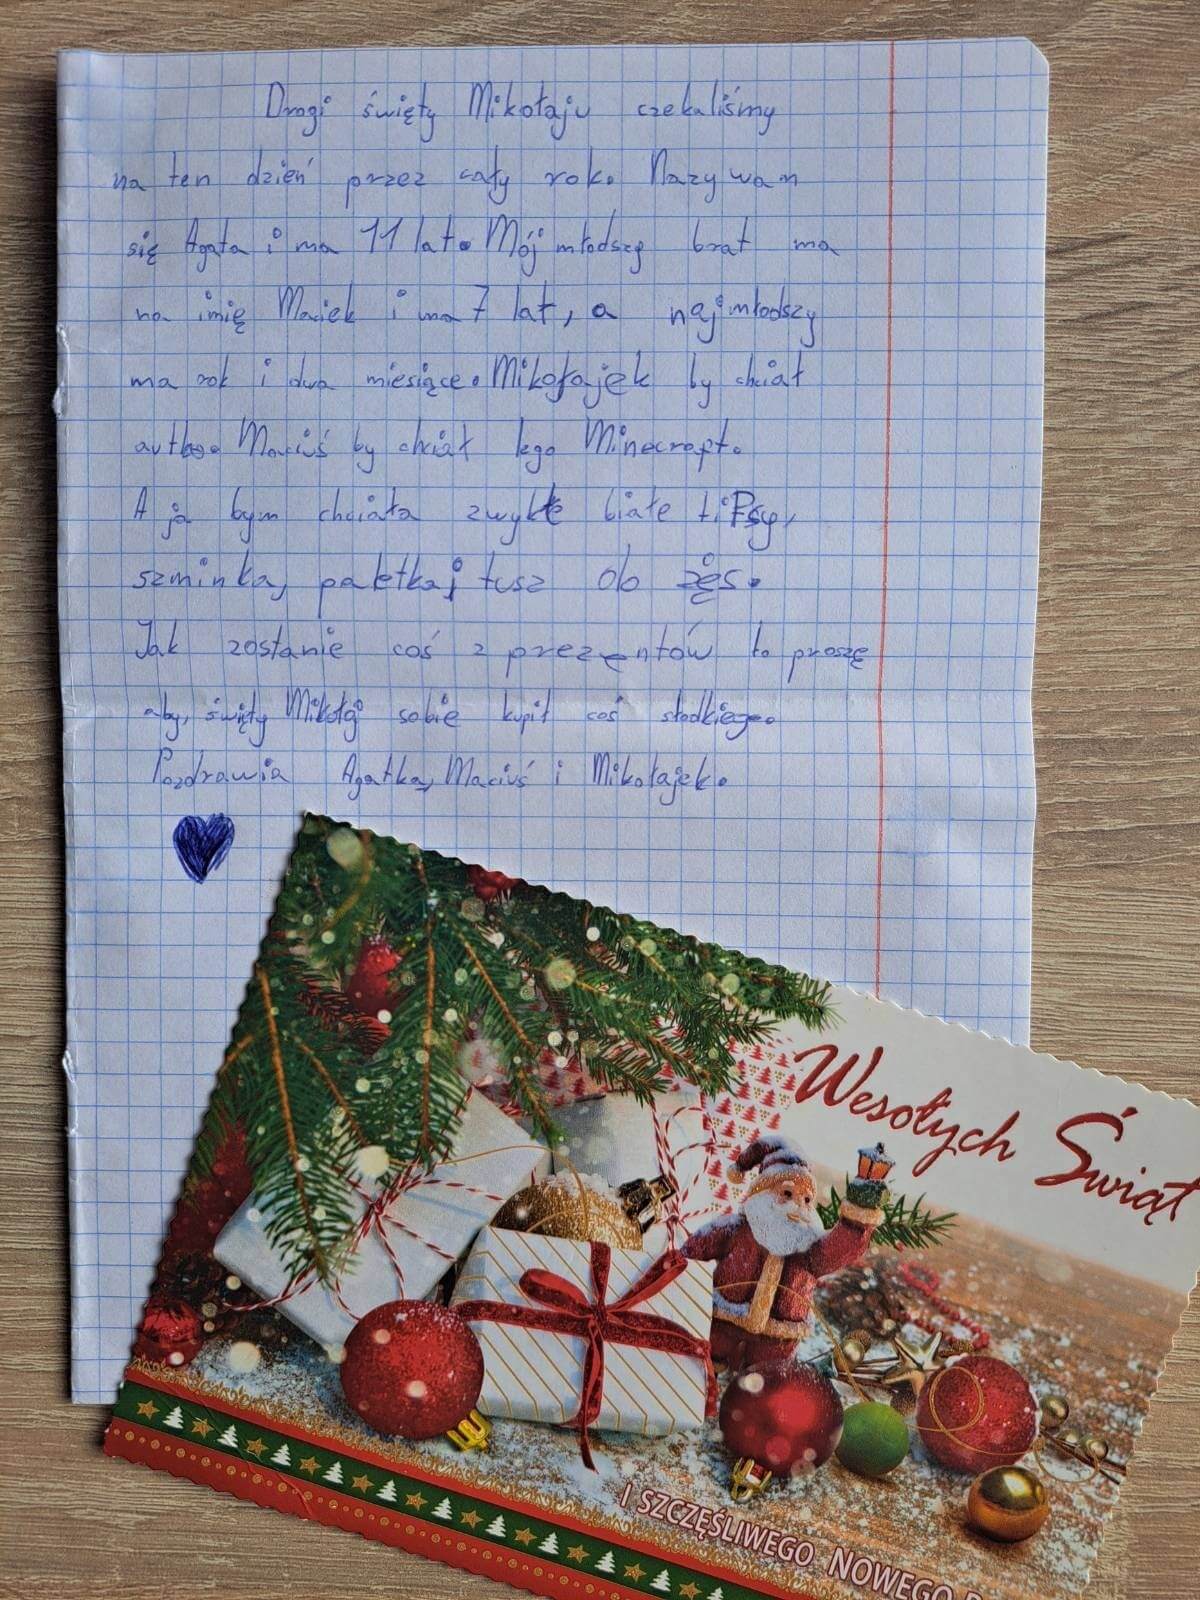 Drogi święty Mikołaju czekaliśmy
na ten dzień przez cały rok. Nazywam
się Agata i ma 11 lat. Mój młodszy brat ma
na imię Maciek i ma 7 lat, a najmłodszy
ma rok i dwa miesiące. Mikołajek by chciał
autko. Maciuś by chciał lego Minecraft.
A ja bym chciała zwykłe białe tiPsy,
szminka, paletkaj tusz do żęs.
Jak zostanie coś z prezentów to proszę
aby, święty Mikołaj sobie kupił coś słodkiego.
Pozdrawia Agatka, Maciuś i Mikołajek.
Wesołych Świąt
I SZCZĘŚLIWEGO NOWEGO R